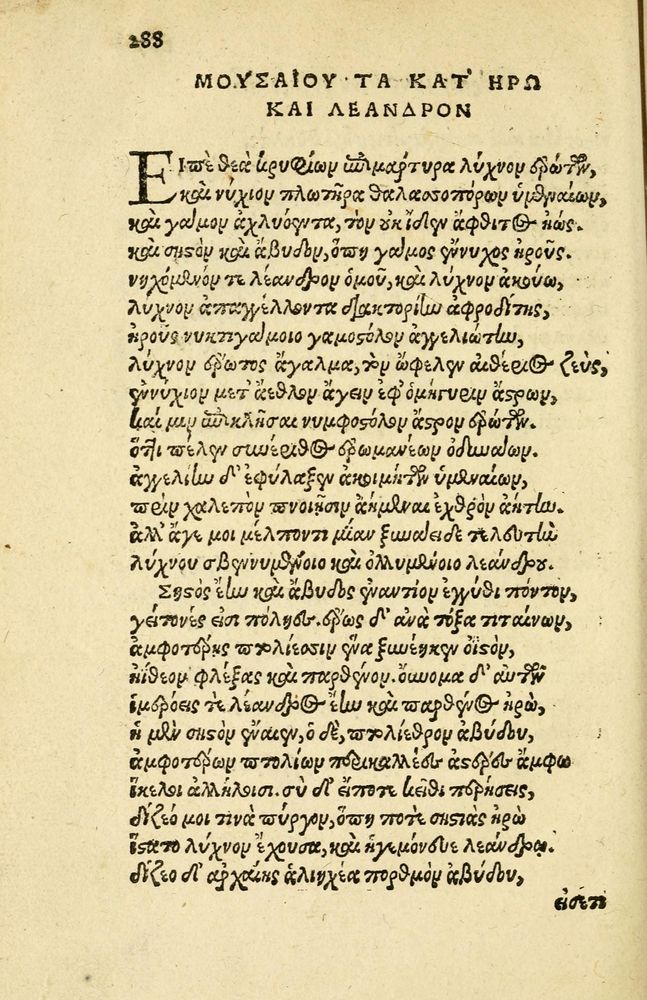 288
ΜΟΥΣΑΙΟΥ ΤΑ ΚΑΤ' ΗΡΩ
ΚΑΙ ΛΕΑΝΔΡΟΝ
Εἰπὲ θεὰ κρυφίων ἐπιμάρτυρα λύχνον ἐρώτων,
καὶ νύχιον πλωτῆρα θαλασσοπόρων ὑμεναίων,
καὶ γάμον ἀχλυόεντα, τὸν οὐκ ἴδεν ἄφθιτος ἠώς.
καὶ σηστὸν καὶ ἄβυδον, ὅπη γάμος ἔννυχος ἡροῦς.
νηχόμενόν τε λέανδρον ὁμοῦ, καὶ λύχνον ἀκούω,
λύχνον ἀπαγγέλλοντα διακτορίην ἀφροδίτης,
ἡροῦς νυκτιγάμοιο γαμοστόλον ἀγγελιώτην,
λύχνον ἔρωτος ἄγαλμα, τὸν ὤφελεν αἰθέριος ζεὺς,
ἐννύχιον μετ' ἄεθλον ἄγειν ἐφ' ὁμήγυριν ἄστρων,
καί μιν ἐπικλῆσαι νυμφοστόλον ἄστρον ἐρώτων.
ὅττι πέλεν συνέριθος ἐρωμανέων ὀδυνάων.
ἀγγελίην δ' ἐφύλαξεν ἀκοιμήτων ὑμεναίων,
πρὶν χαλεπὸν πνοιῇσιν ἀήμεναι ἐχθρὸν ἀήτην.
ἀλλ' ἄγε μοι μέλποντι μίαν ξυνάειδε τελευτὴν
λύχνου σβεννυμένοιο καὶ ὀλλυμένοιο λεάνδρου.
Σηστὸς ἔην καὶ ἄβυδος ἐναντίον ἐγγύθι πόντου,
γείτονές εἰσι πόληες. ἔρως δ' ἀνὰ τόξα τιταίνων,
ἀμφοτέρῃς πτολίεσσιν ἕνα ξυνέηκεν ὀϊστὸν,
ἠΐθεον φλέξας καὶ παρθένον. οὔνομα δ' αὐτῶν
ἱμερόεις τε λέανδρος ἔην καὶ παρθένος ἡρὼ,
ἡ μὲν σηστὸν ἔναιεν, ὁ δὲ, πτολίεθρον ἀβύδου,
ἀμφοτέρων πτολίων περικαλλέες ἀστέρες ἄμφω
ἴκελοι ἀλλήλοισι. σὺ δ' εἴ ποτε κεῖθι περήσεις,
δίζεό μοι τινὰ πύργον, ὅπη ποτὲ σηστιὰς ἡρὼ
ἵστατο λύχνον ἔχουσα, καὶ ἡγεμόνευε λεάνδρῳ.
δίζεο δ' ἀρχαίης ἁλιηχέα πορθμὸν ἀβύδου,
εἰσέτι